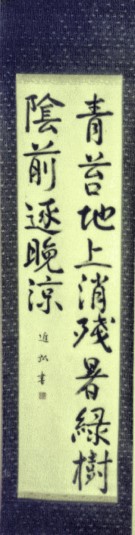 青苔地上消残暑緑樹
陰前逐晩涼